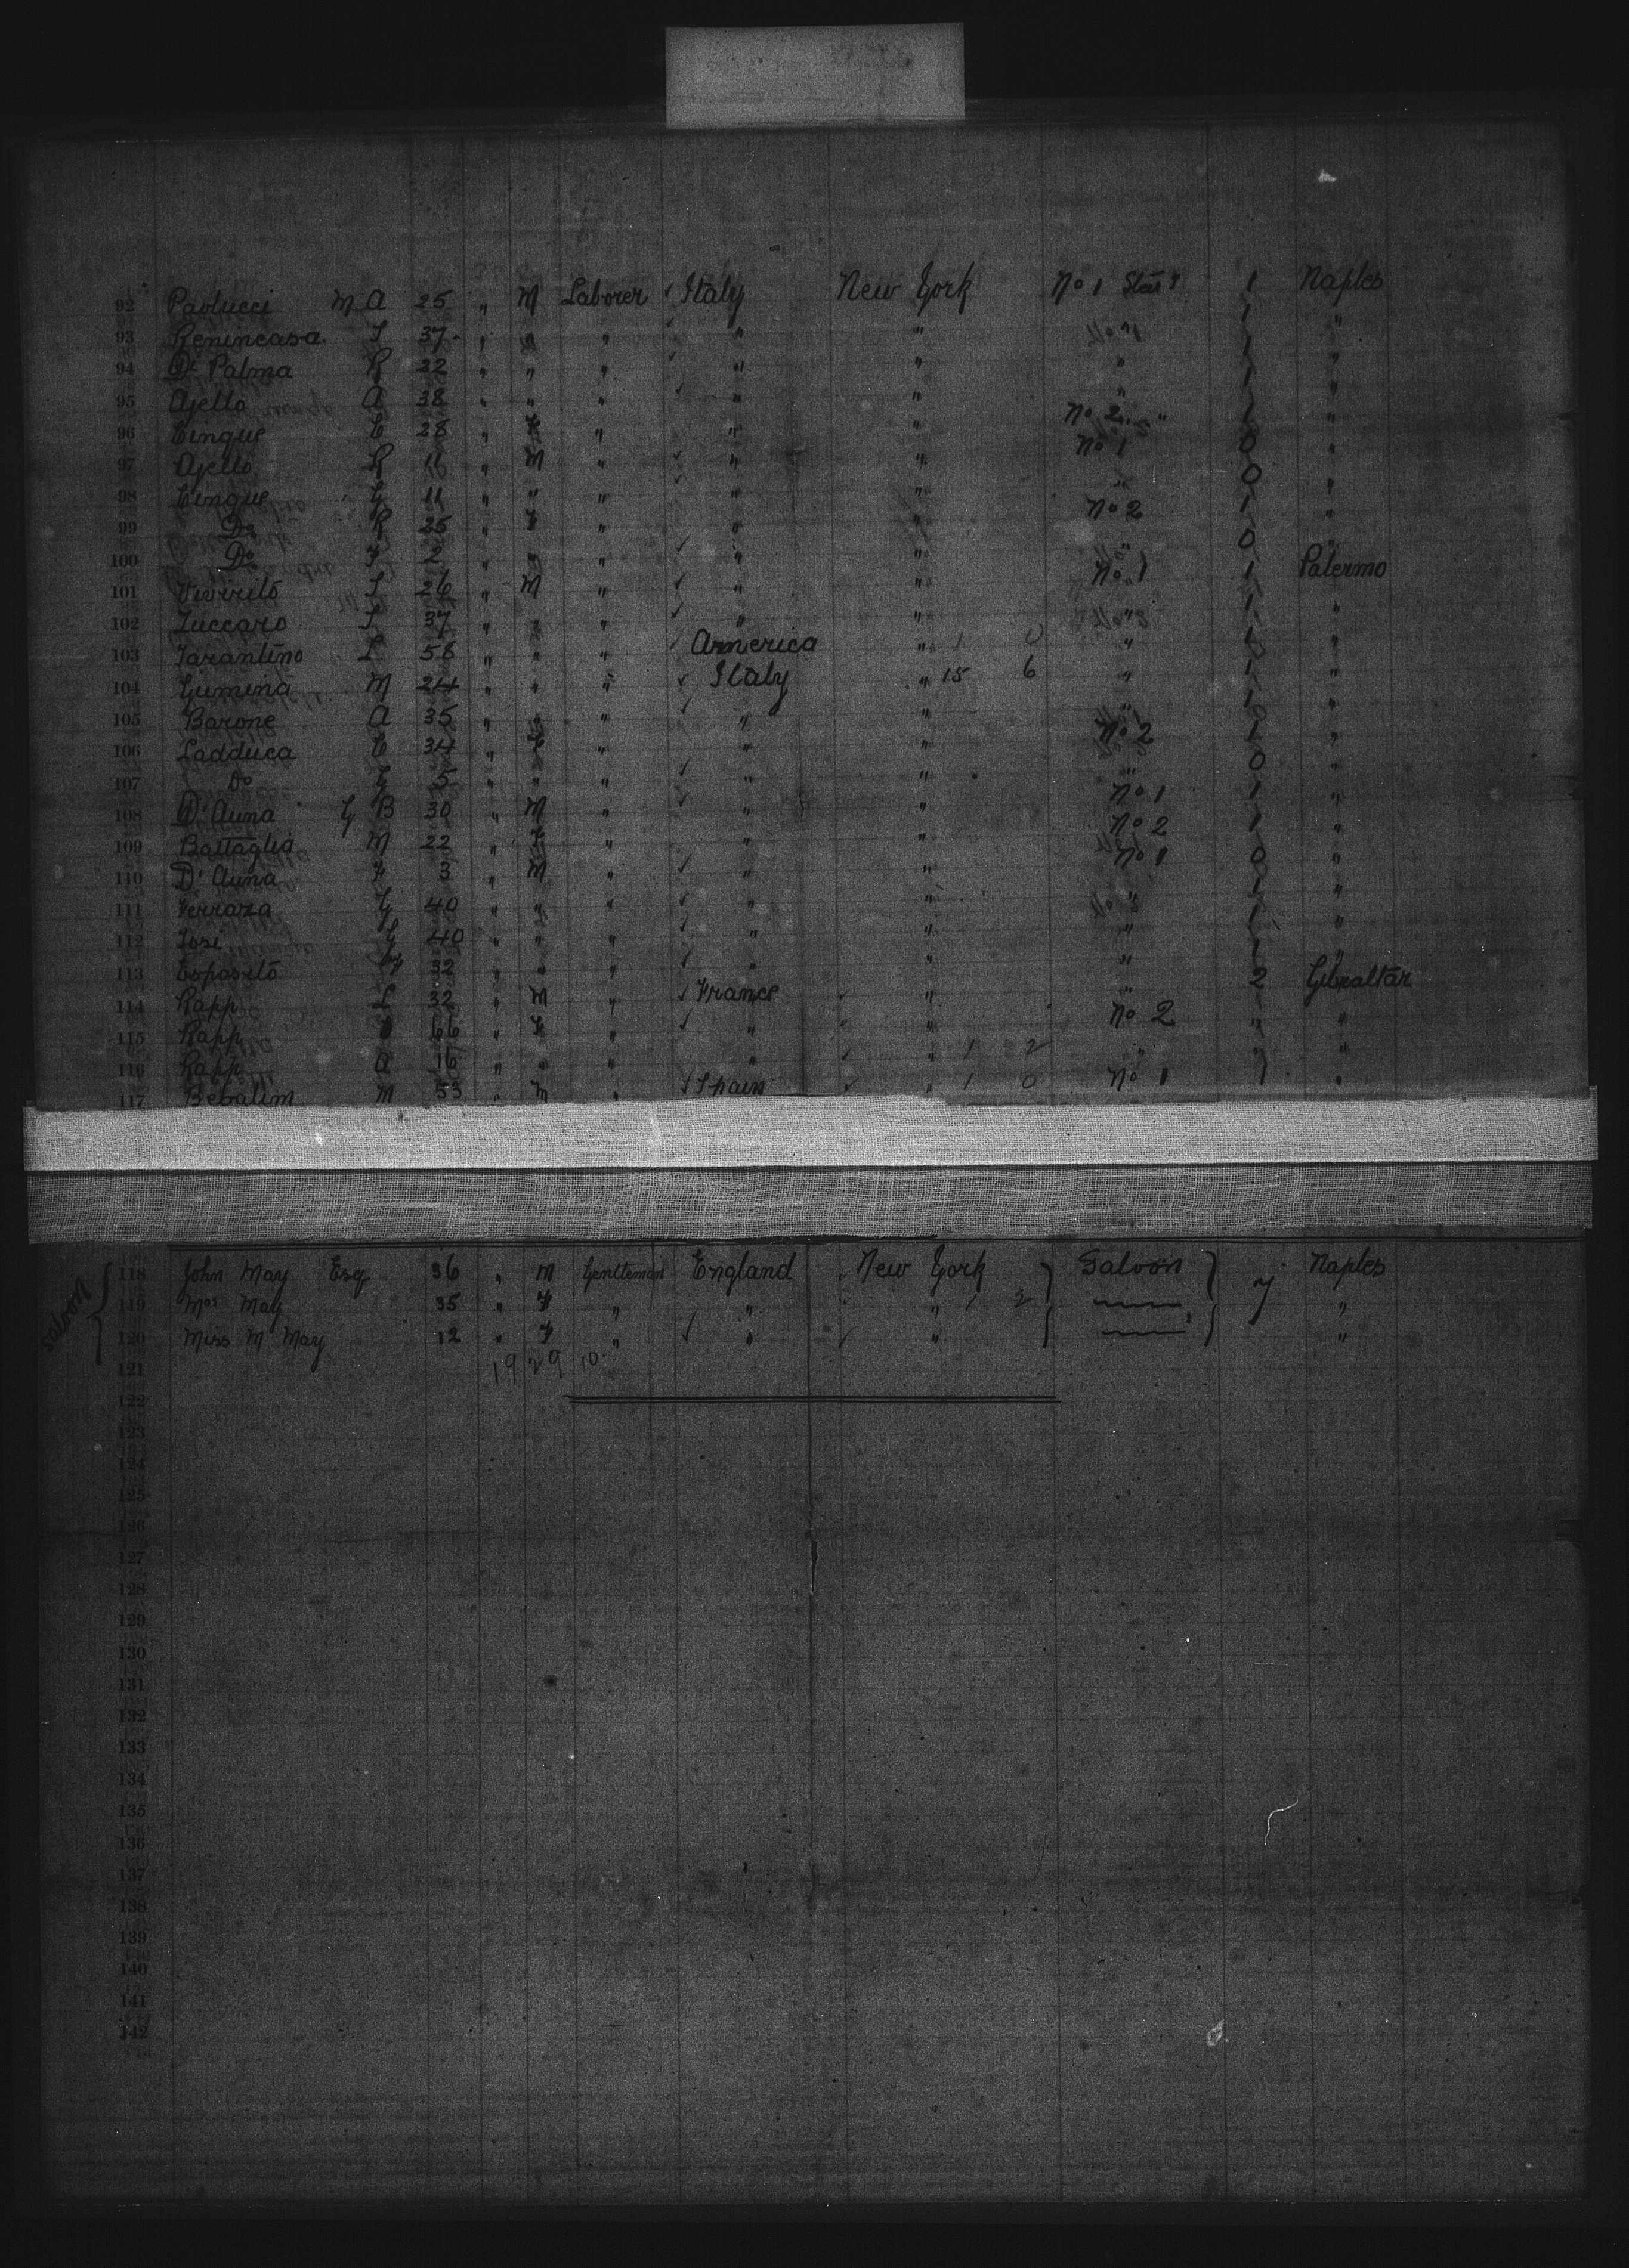 92 Paolucci M A 25 " M Laborer Italy New York No 1 1 Naples
93 J 37 " " " " " " 1 "
94 De Palma R 22 " " " " " " 1 "
95 Ajello A 38 " " " " " " 1 "
96 Cinque C 28 " F " " " No 2 " 1 "
97 Ajello R 16 " M " " " No 1 0 "
98 Cinque G 11 " " " " " " 0 "
99 Do R 25 " F " " " No 2 1 "
100 Do 2 " " " " " " 0 "
101 26 " M " " " No 1 1 Palermo
102 37 " " " " " " 1 "
103 Tarantino 58 " " " America " 1 0 " 1 "
104 Gumina M 24 " " " Italy " 15 6 " 1 "
105 Barone A 35 " " " " " " 1 "
106 Ladduca C 34 " F " " " No 2 1 "
107 Do 5 " " " " " " 0 "
108 D'Auna G B 30 " M " " " No 1 1 "
109 Battaglia M 22 " F " " " No 2 1 "
110 D'Auna F 3 " M " " " No 1 0 "
111 Ferrara G 40 " " " " " " 1 "
112 G 40 " " " " " " 1 "
113 Esposito 32 " " " " " " 1 "
114 Rapp L 32 " M " France " " 2 Gibraltar
115 Rapp 66 " F " " " No 2 " "
116 Rapp A 16 " " " " " 1 2 " " "
117 M 53 " M " Spain " 1 0 No 1 1 "
Saloon
118 John May Esq 36 " M Gentleman England New York Saloon 7 Naples
119 Mrs May 35 " F " " " 1 2 "
120 Miss M May 12 " F " " " "
121 19 29 10
122
123
124
125
126
127
128
129
130
131
132
133
134
135
136
137
138
139
140
141
142